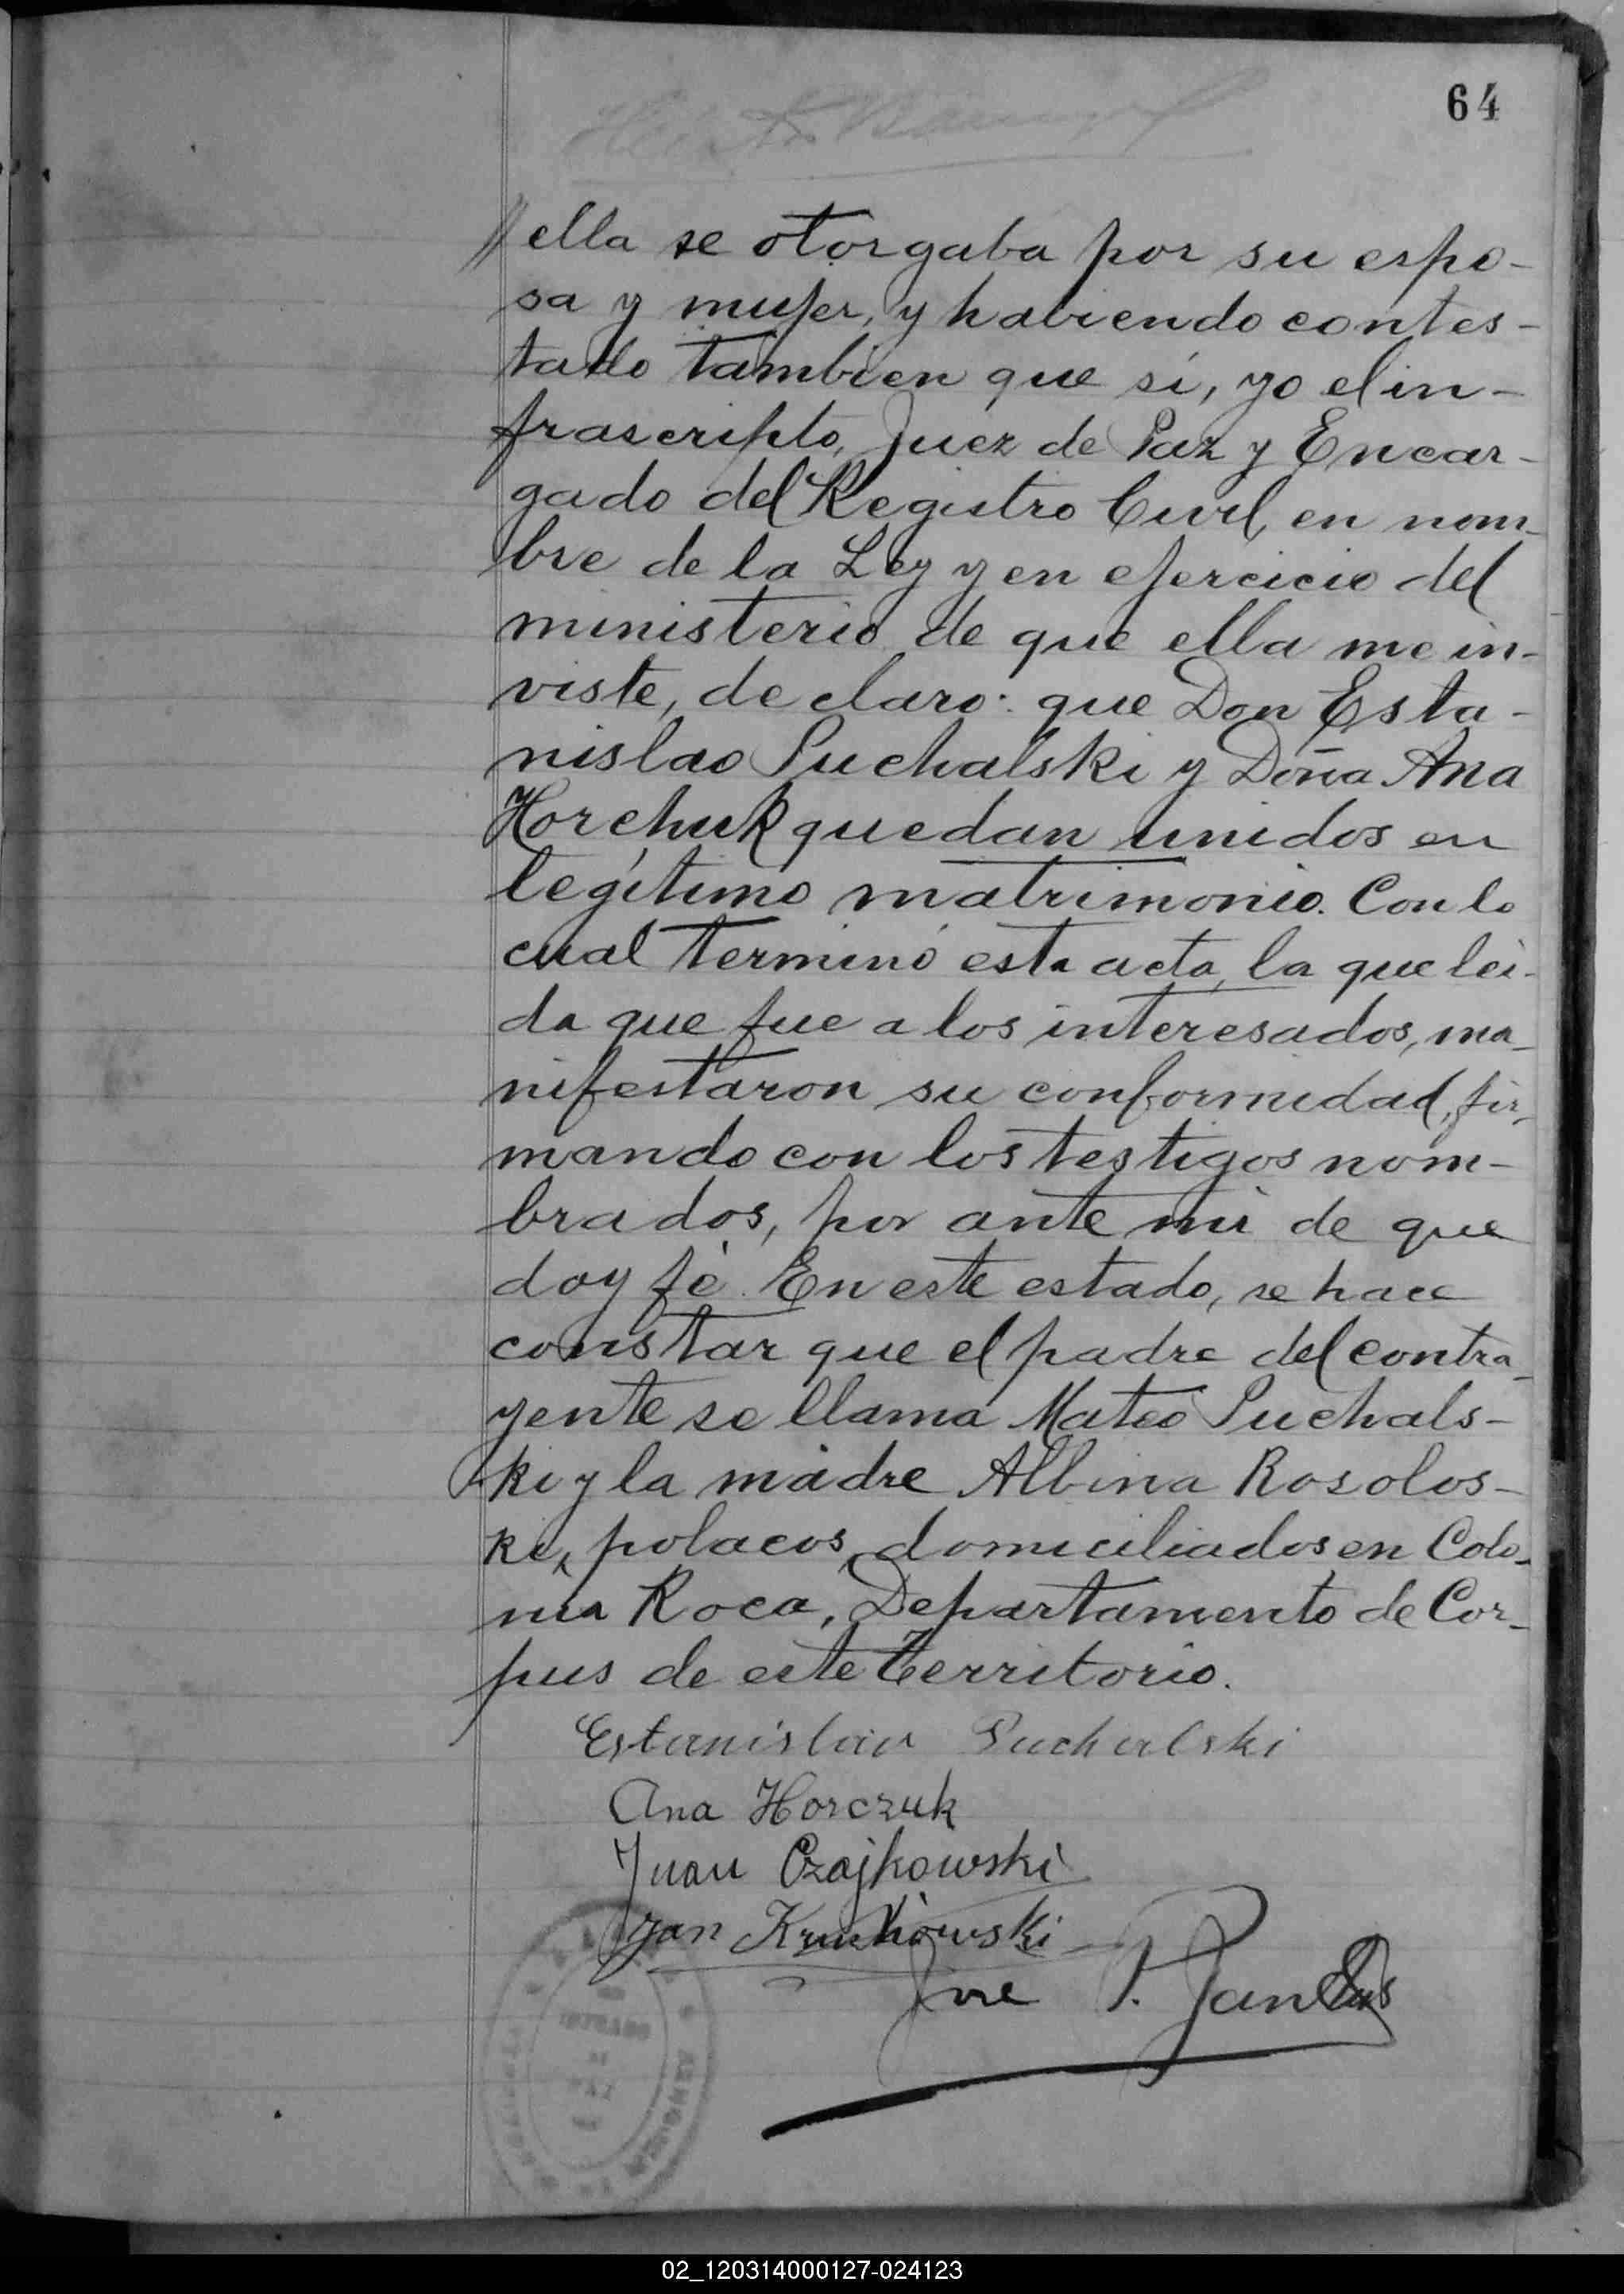 64
// ella se otorgaba por su espo-
sa y mujer, y habiendo contes-
tado tambien que sí, yo el in-
frascripto, Juez de Paz y Encar-
gado del Registro Civil, en nom-
bre de la Ley y en ejercicio del
ministerio de que ella me in-
viste, declaro: que Don Esta-
nislao Puchalski y Doña Ana
Horchuk quedan unidos en
legítimo matrimonio. Con lo
cual terminó esta acta, la que leí-
da que fue a los interesados, ma-
nifestaron su conformidad, fir-
mando con los testigos nom-
brados, por ante mí de que
doy fé. En este estado, se hace
constar que el padre del contra-
yente se llama Mateo Puchals-
ki y la madre Albina Rosolos-
ki, polacos, domiciliados en Colo-
nia Roca, Departamento de Cor-
pus de este Territorio.
Estanislav Puchalski
Ana Horczuk
Juan Czajkowski
Jan
Jose
02_120314000127-024123